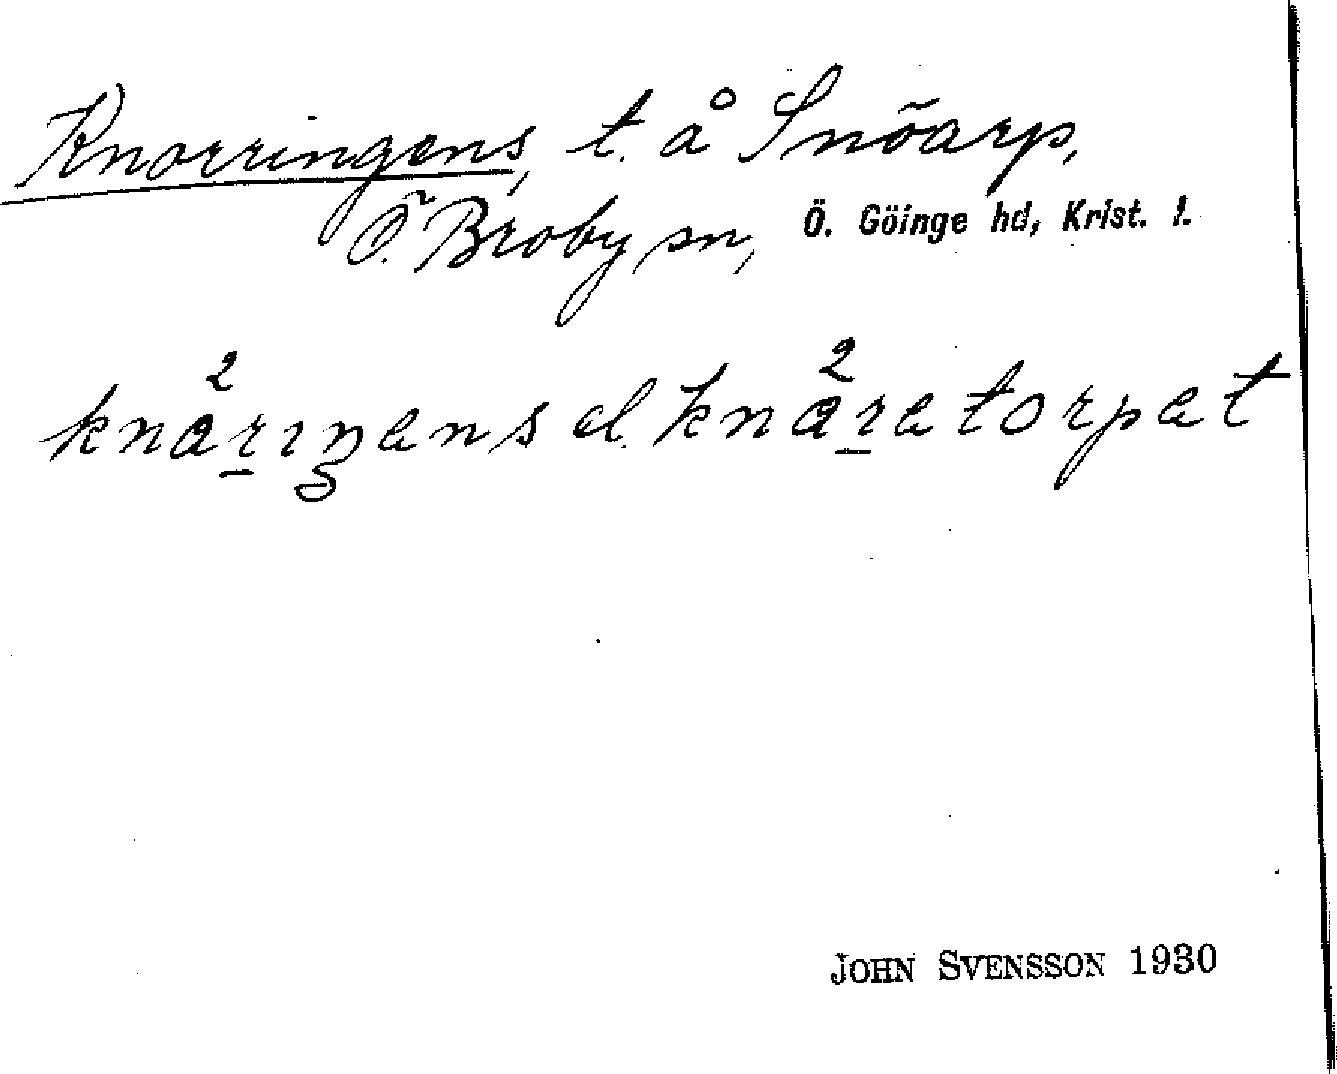 Knorringens, t. å Snöarp,
Ö. Broby sn, Ö. Göinge hd, Krist. l.
knå²riŋens el. knå²retorpet
JOHN SVENSSON 1930